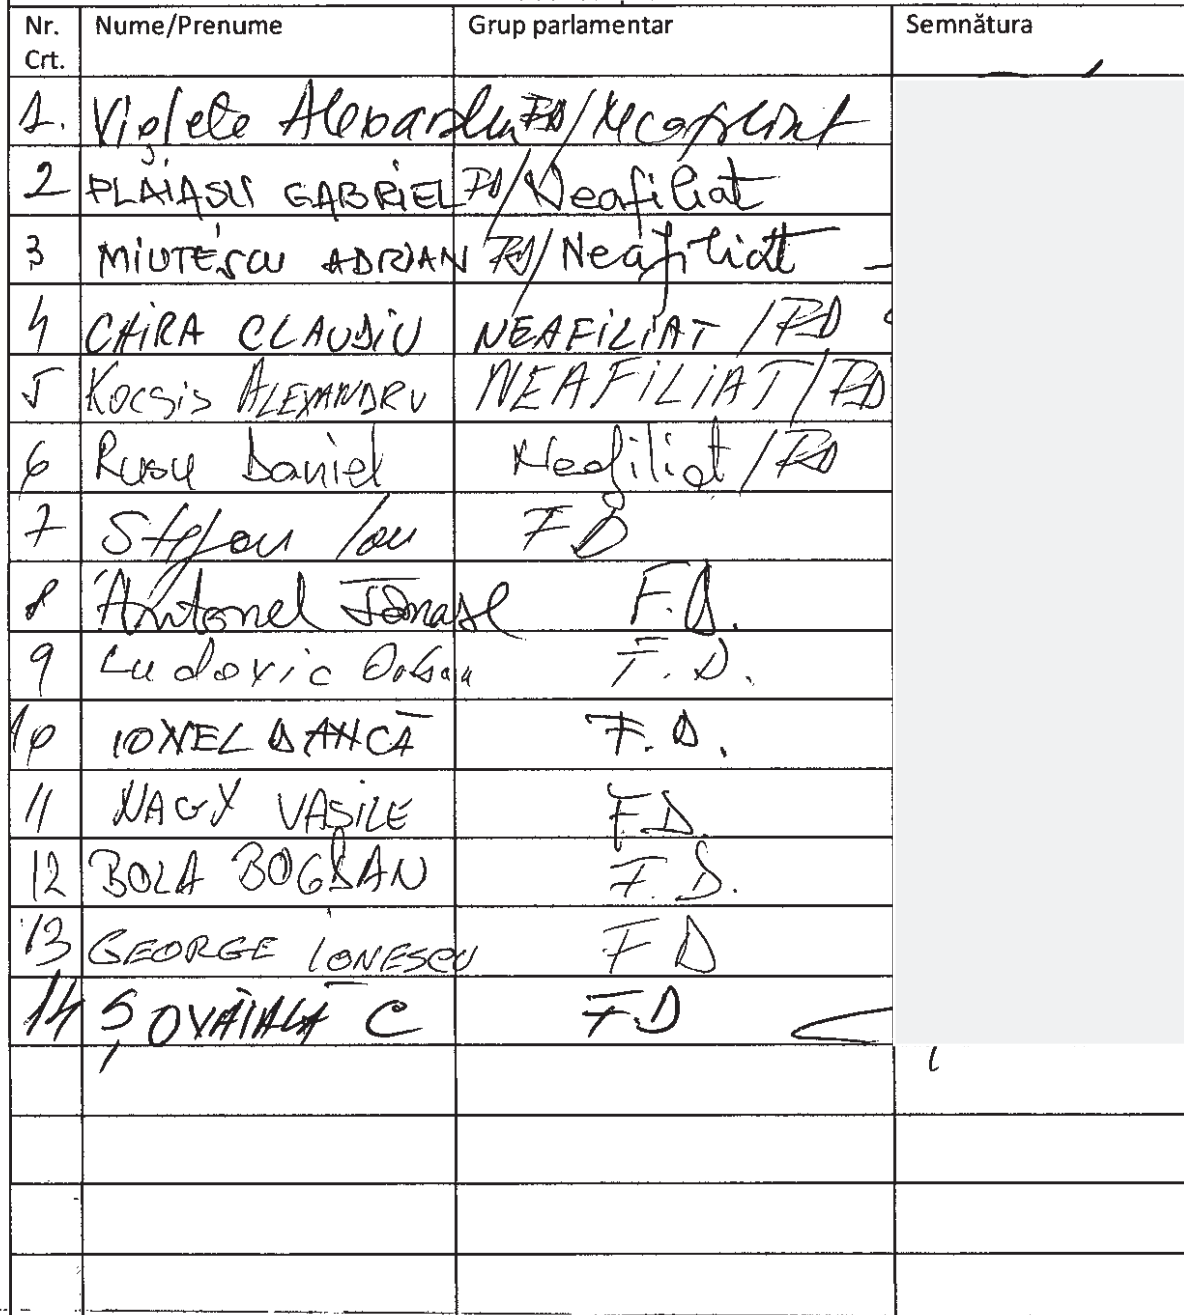 Nr. Crt. Nume/Prenume Grup parlamentar Semnătura
1. Violeta Alexandru FD/Neafiliat
2 PLĂIAȘU GABRIEL FD/Neafiliat
3 MIUȚESCU ADRIAN FD/Neafiliat
4 CHIRA CLAUDIU NEAFILIAT / FD
5 Kocsis ALEXANDRU NEAFILIAT / FD
6 Rusu Daniel Neafiliat / FD
7 Ștefan Ion FD
8 Antonel Tănase F.D.
9 Ludovic Orban F.D.
10 IONEL DANCĂ F.D.
11 NAGY VASILE F.D.
12 BOLA BOGDAN F.D.
13 GEORGE IONESCU FD
14 ȘOVĂIALĂ C F.D